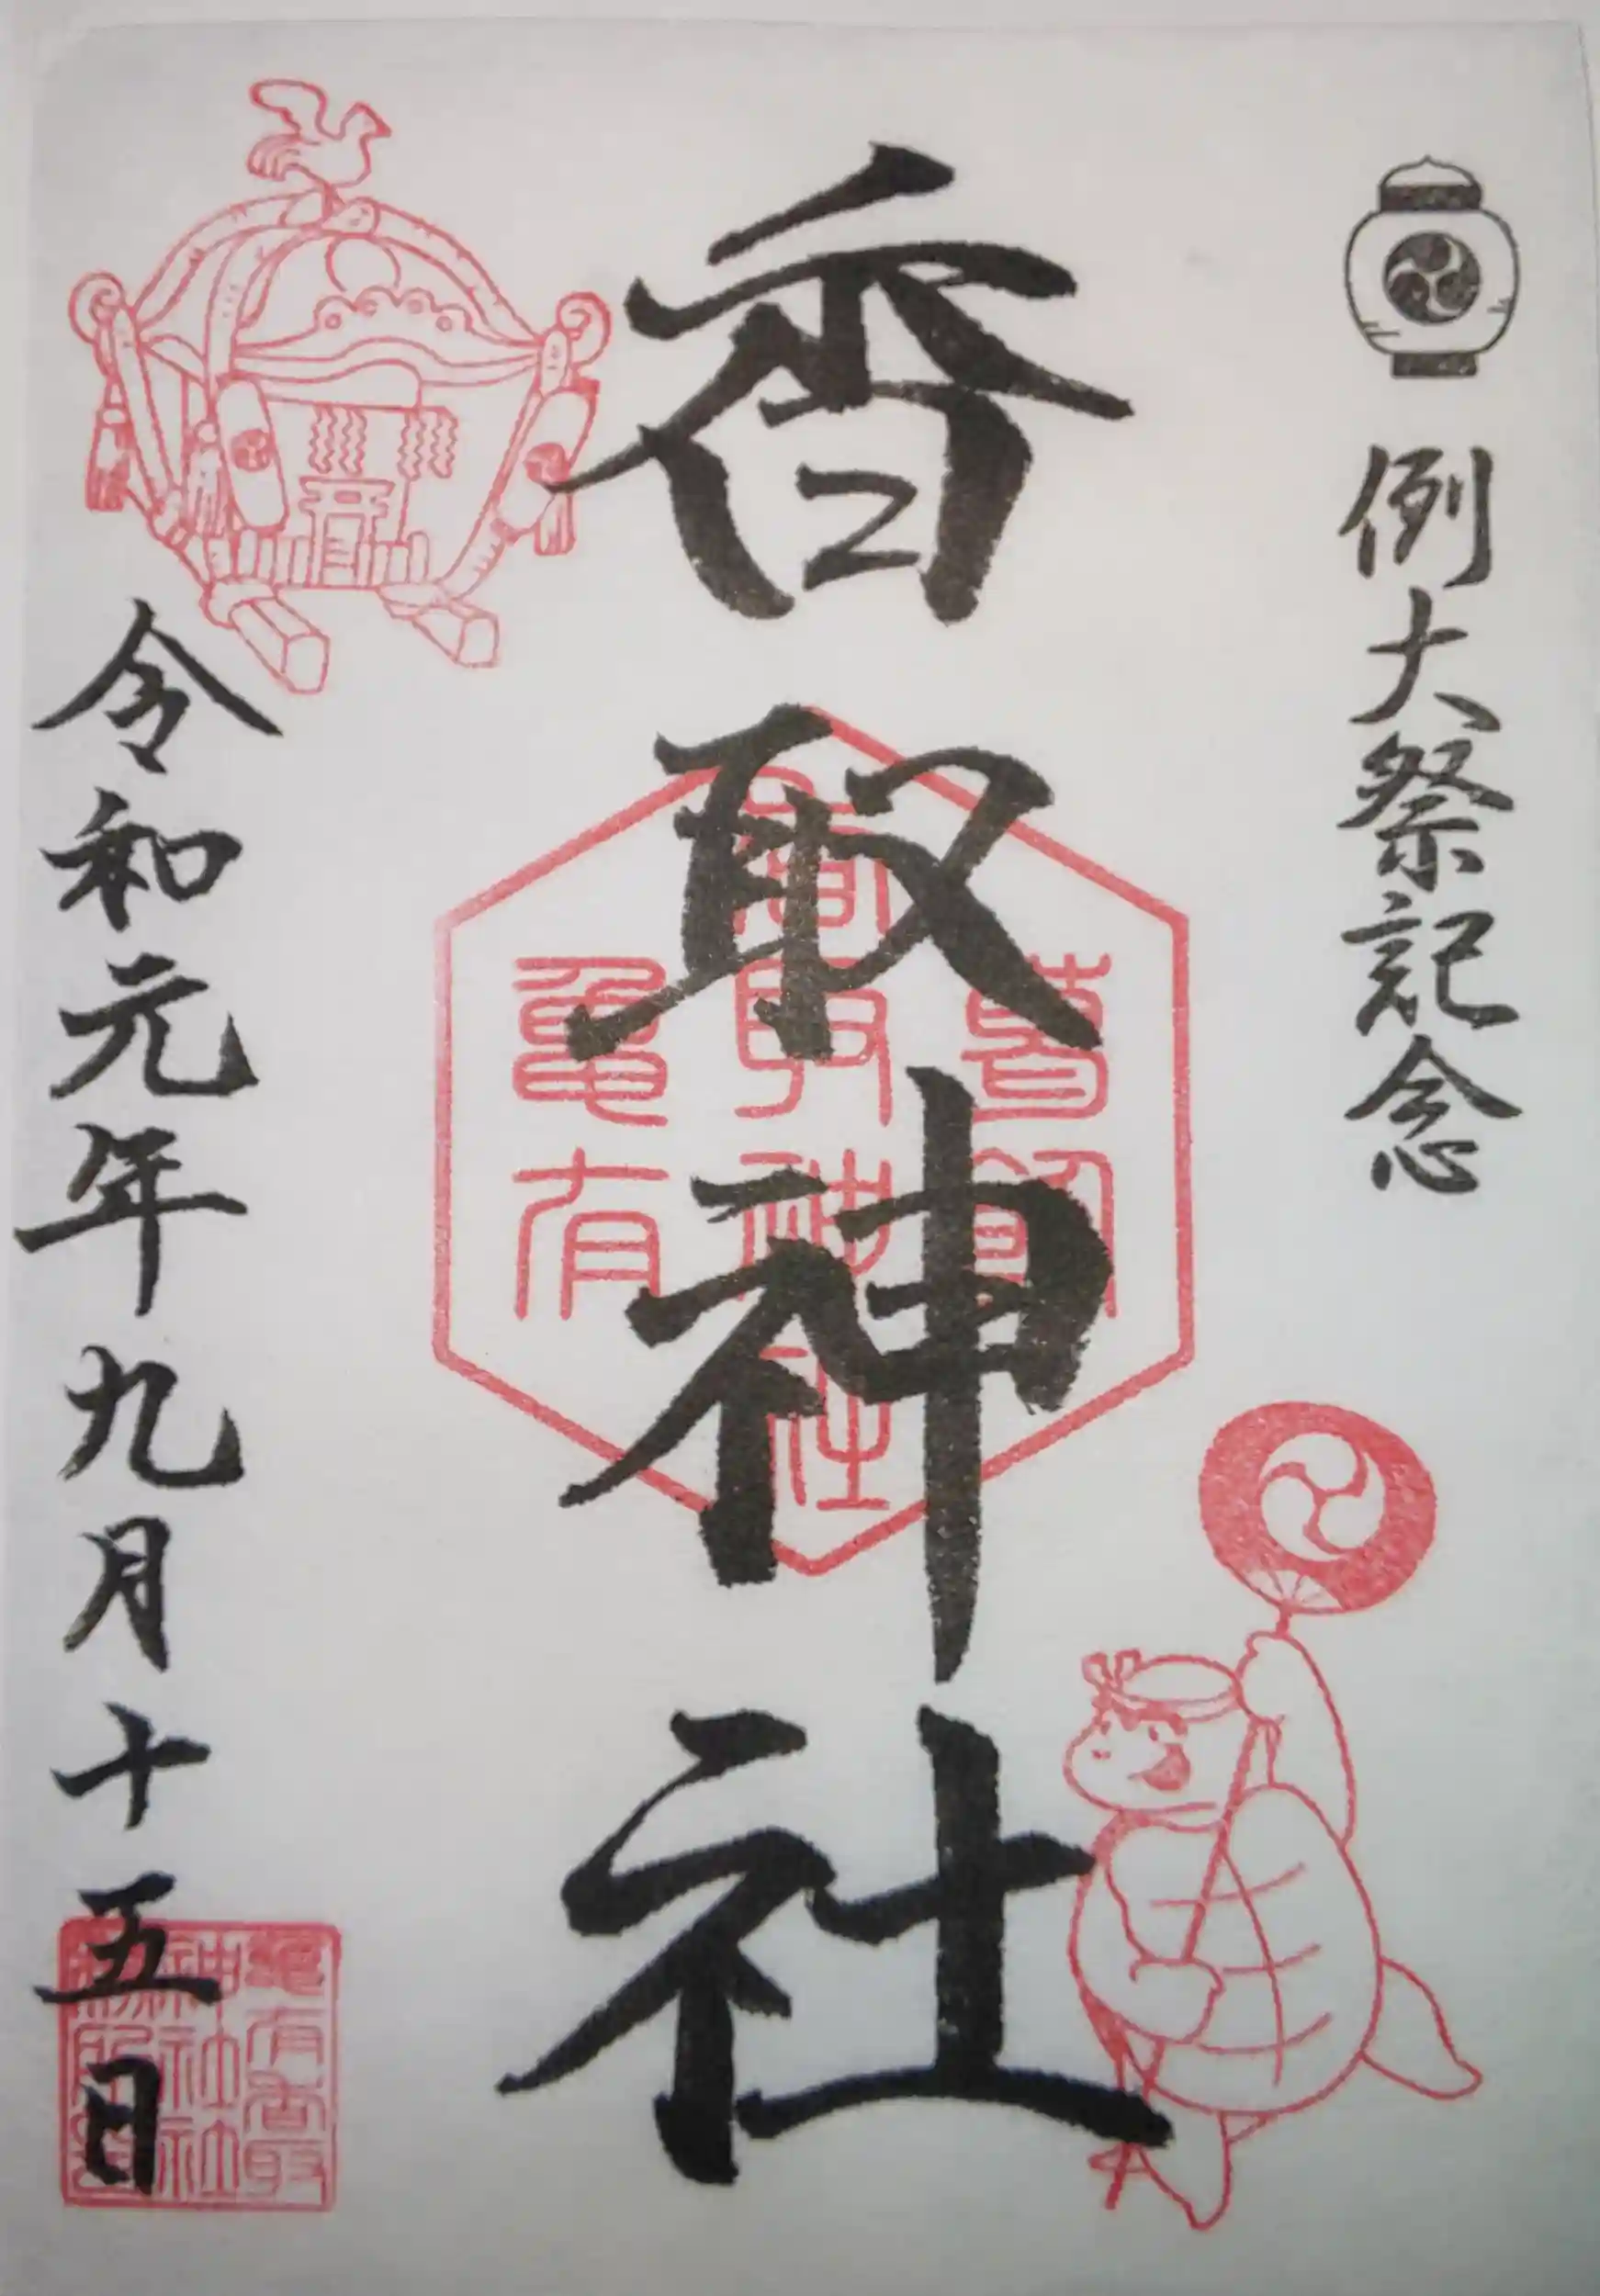 例大祭記念
香取神社
葛飾
香取神社
亀有
令和元年九月十五日
亀有香取
神社社